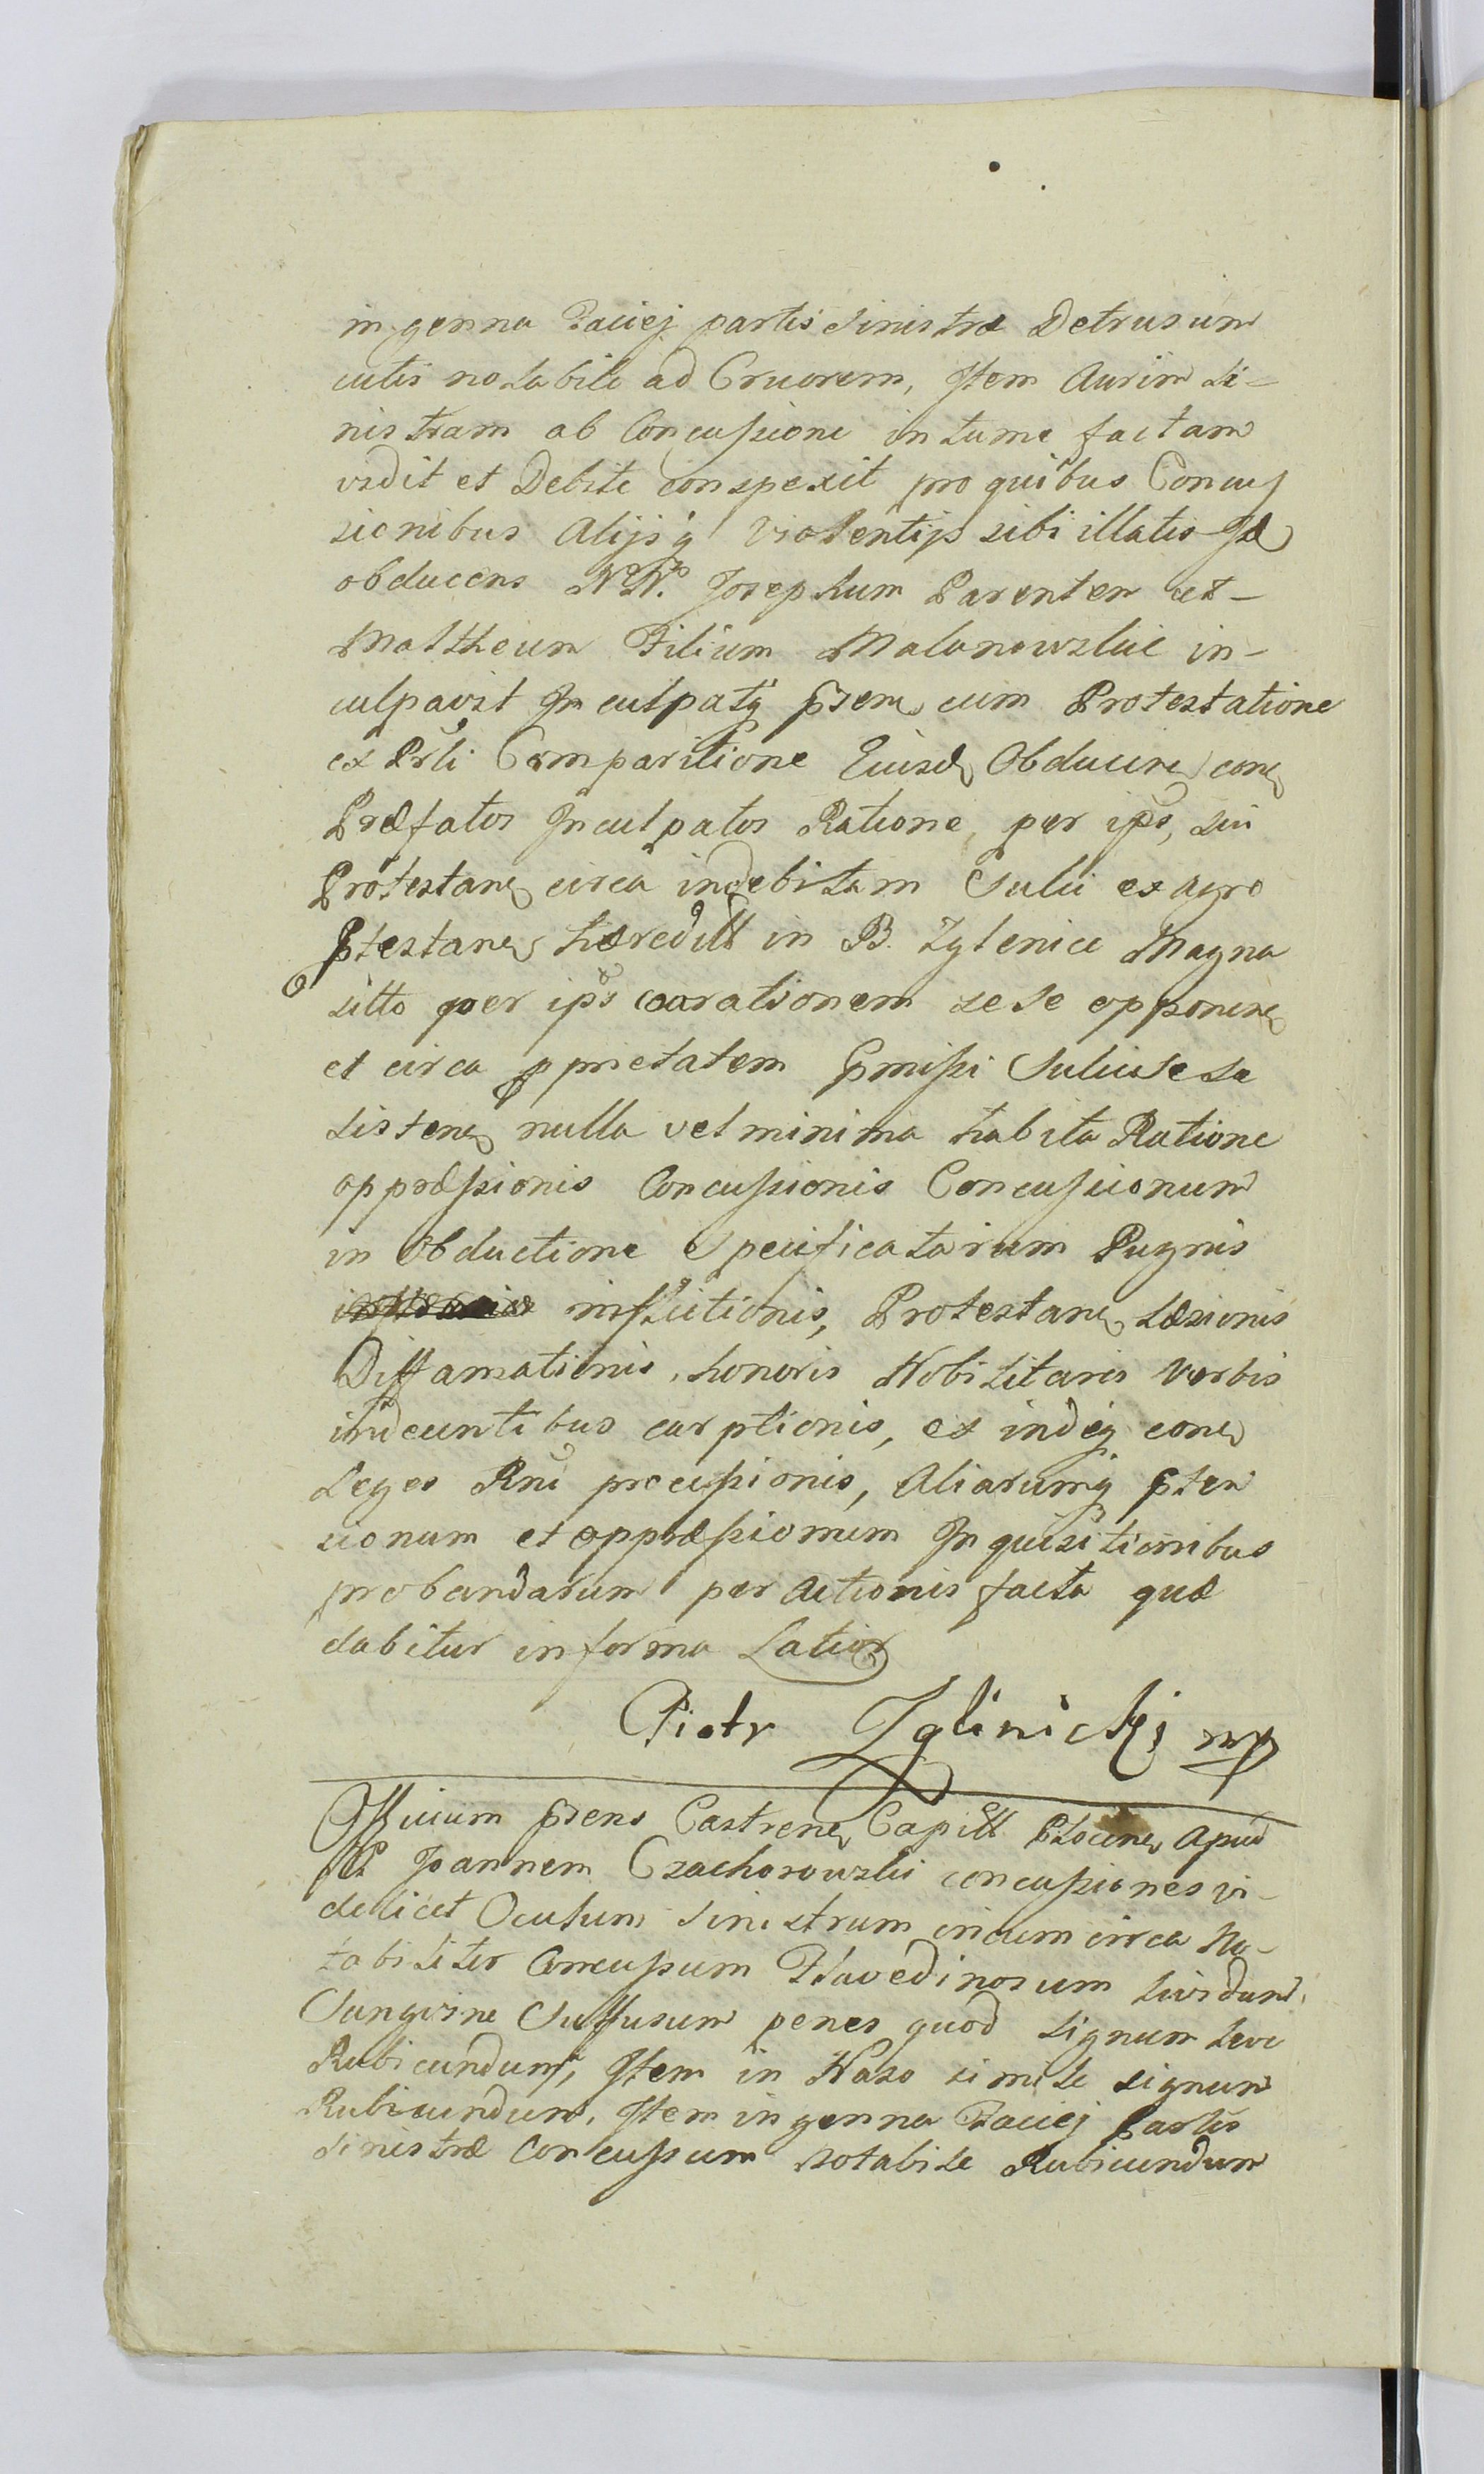 in genna Faciej partis Sinistræ Detrusum
cutis notabile ad Cruorem, Item Aurim Si-
nistram ab Concussione intume factam
vidit et Debite conspexit pro quibus Concus
sionibus Alijsq violentijs sibi illatis Id
obducens NN. Josephum Parentem et-
Mattheum Filium Malanowskie in-
culpavit Inculpatq psen cum Protestatione
ex Psli Comparitione Eiusd Obducen con
Præfatos Inculpatos Ratione, per ips, sui
Protestan circa indebitam Sulci ex agro
Ptestan hæredill in B. Zglenice Magna
sitto per ips exarationem sese opponen
et circa pprietatem pmissi Sulci sese
sisten nulla vel minima habita Ratione
oppræssionis Concussionis Concussionum
in Obductione Specificatarum Pugnis
inflictionis, Protestan Læsionis
Diffamationis, honoris Nobilitaris verbis
indecentibus carptionis, ex indeq con
Leges Rni processionis, Aliarumq pten
sionum et oppræssionum Inquisitionibus
probandarum per Actionis facta quæ
dabitur in forma Latior
Piotr Zglinicki mp
Officium psens Castren Capitl Plocen apud
Joannem Czachorowski concussiones vi-
delicet Oculum Sinistrum incumcirca No-
tabiliter Concussum Flavedinosum lividum,
Sangvine Suffusum penes quod signum leve
Rubicundum, Item in Naso simile signum
Rubicundum, Item in genna Faciej Partis
Sinistræ Concussum notabile Rubicundum